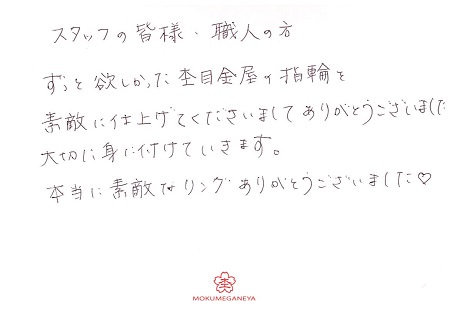 スタッフの皆様、職人の方
ずっと欲しかった杢目金屋の指輪を
素敵に仕上げてくださいましてありがとうございました
大切に身に付けていきます。
本当に素敵なリングありがとうございました♡
杢
MOKUMEGANEYA